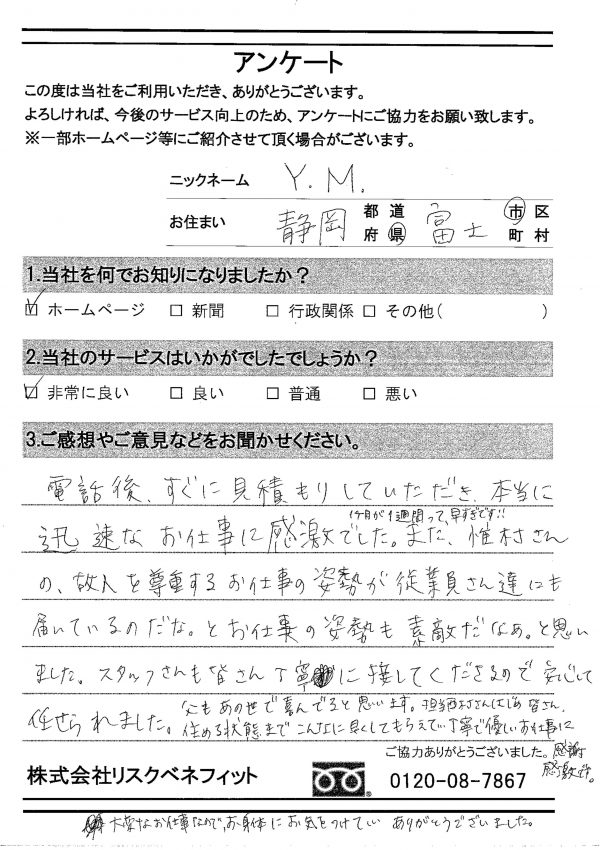 アンケート
この度は当社をご利用いただき、ありがとうございます。
よろしければ、今後のサービス向上のため、アンケートにご協力をお願い致します。
※一部ホームページ等にご紹介させて頂く場合がございます。
ニックネーム Y.M.
お住まい 静岡 都道府県 富士 市区町村
1.当社を何でお知りになりましたか？
☑ ホームページ □ 新聞 □ 行政関係 □ その他( )
2.当社のサービスはいかがでしたでしょうか？
☑ 非常に良い □ 良い □ 普通 □ 悪い
3.ご感想やご意見などをお聞かせください。
電話後、すぐに見積もりしていただき、本当に
1ヶ月が1週間って、早すぎです!!
迅速なお仕事に感激でした。また、惟村さん
の、故人を尊重するお仕事の姿勢が従業員さん達にも
届いているのだな。とお仕事の姿勢も素敵だなあ。と思い
ました。スタッフさんも皆さん丁寧に接してくださるので安心して
任せられました。
父もあの世で喜んでると思います。担当西村さんはじめ皆さん、
住める状態までこんなに早くしてもらえて、丁寧で優しいお仕事に
感謝
感激です。
ご協力ありがとうございました。
株式会社リスクベネフィット 0120-08-7867
大変なお仕事なので、お身体にお気をつけてい ありがとうございました。